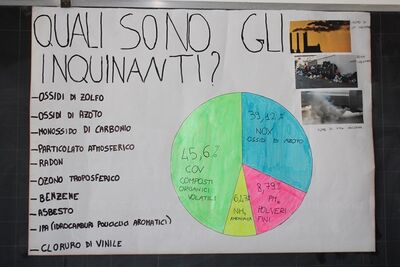 QUALI SONO GLI
INQUINANTI?
- OSSIDI DI ZOLFO
- OSSIDI DI AZOTO
- MONOSSIDO DI CARBONIO
- PARTICOLATO ATMOSFERICO
- RADON
- OZONO TROPOSFERICO
- BENZENE
- ASBESTO
- IPA (IDROCARBURI POLICICLICI AROMATICI)
- CLORURO DI VINILE
45,6%
COV
COMPOSTI
ORGANICI
VOLATILI
39,92%
NOX
OSSIDI DI AZOTO
8,79%
POLVERI
FINI
NH₃
AMMONIACA